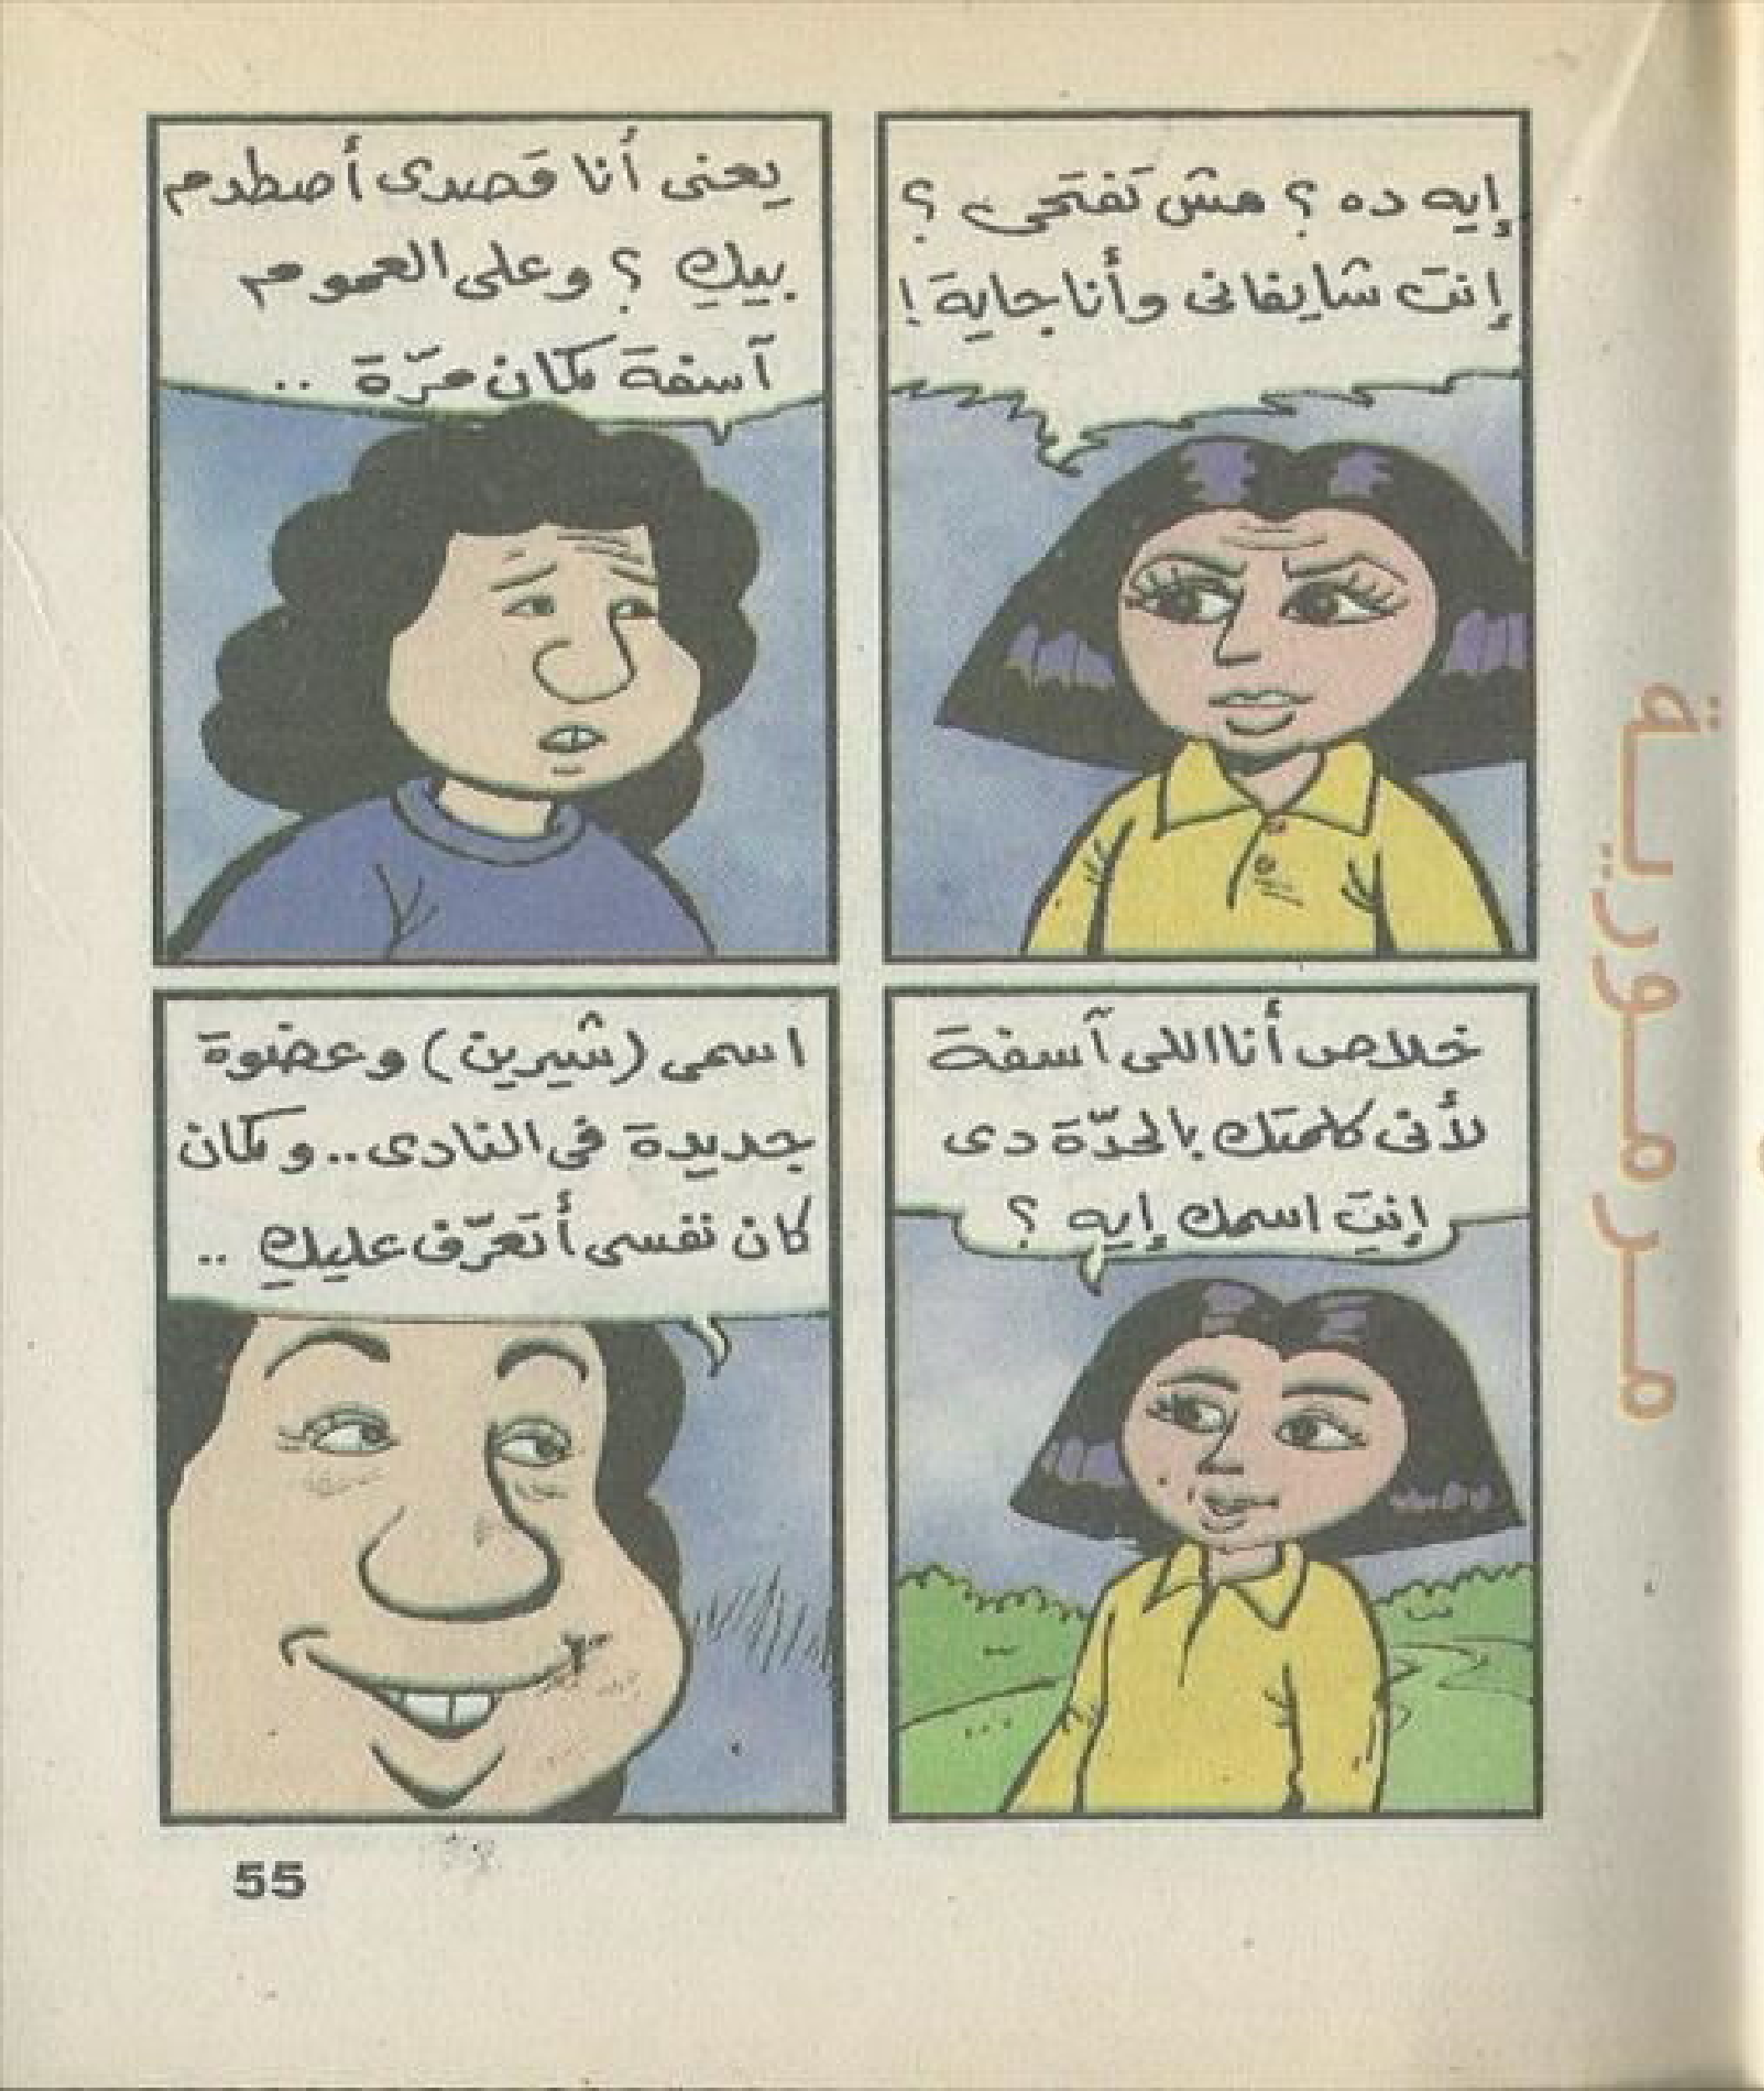 إيه ده ؟ مش تَفتَحى ؟
إنتِ شايفانى وأنا جاية !
يعنى أنا قَصدى أصطدم
بيكِ ؟ وعلى العموم
آسفة كمان مرّة ..
خلاص أنا اللى آسفة
لأنى كلمتك بالحدّة دى
إنتِ اسمك إيه ؟
اسمى (شيرين) وعضوة
جديدة فى النادى .. وكمان
كان نفسى أتعرّف عليكِ ..
مرمورية
55